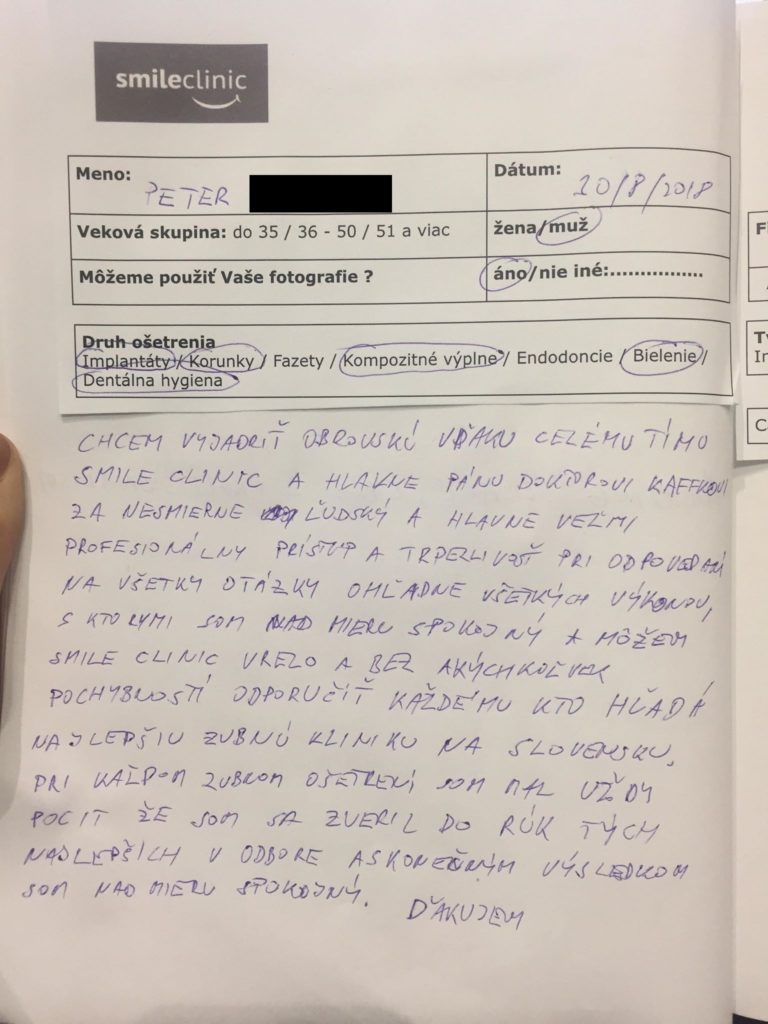 smileclinic
Meno: PETER
Dátum: 10/8/2018
Veková skupina: do 35 / 36 - 50 / 51 a viac
žena/muž
Môžeme použiť Vaše fotografie ?
áno/nie iné:................
Druh ošetrenia
Implantáty / Korunky / Fazety / Kompozitné výplne / Endodoncie / Bielenie /
Dentálna hygiena
CHCEM VYJADRIŤ OBROVSKÚ VĎAKU CELÉMU TÍMU
SMILE CLINIC A HLAVNE PÁNU DOKTOROVI KAFFKOVI
ZA NESMIERNE ĽUDSKÝ A HLAVNE VEĽMI
PROFESIONÁLNY PRÍSTUP A TRPEZLIVOSŤ PRI ODPOVEDANÍ
NA VŠETKY OTÁZKY OHĽADNE VŠETKÝCH VÝKONOV,
S KTORYMI SOM NAD MIERU SPOKOJNÝ A MÔŽEM
SMILE CLINIC VRELO A BEZ AKÝCHKOĽVEK
POCHYBNOSTÍ ODPORUČIŤ KAŽDÉMU KTO HĽADÁ
NAJLEPŠIU ZUBNÚ KLINIKU NA SLOVENSKU.
PRI KAŽDOM ZUBNOM OŠETRENÍ SOM MAL VŽDY
POCIT ŽE SOM SA ZVERIL DO RÚK TÝCH
NAJLEPŠÍCH V ODBORE A S KONEČNÝM VÝSLEDKOM
SOM NAD MIERU SPOKOJNÝ. ĎAKUJEM